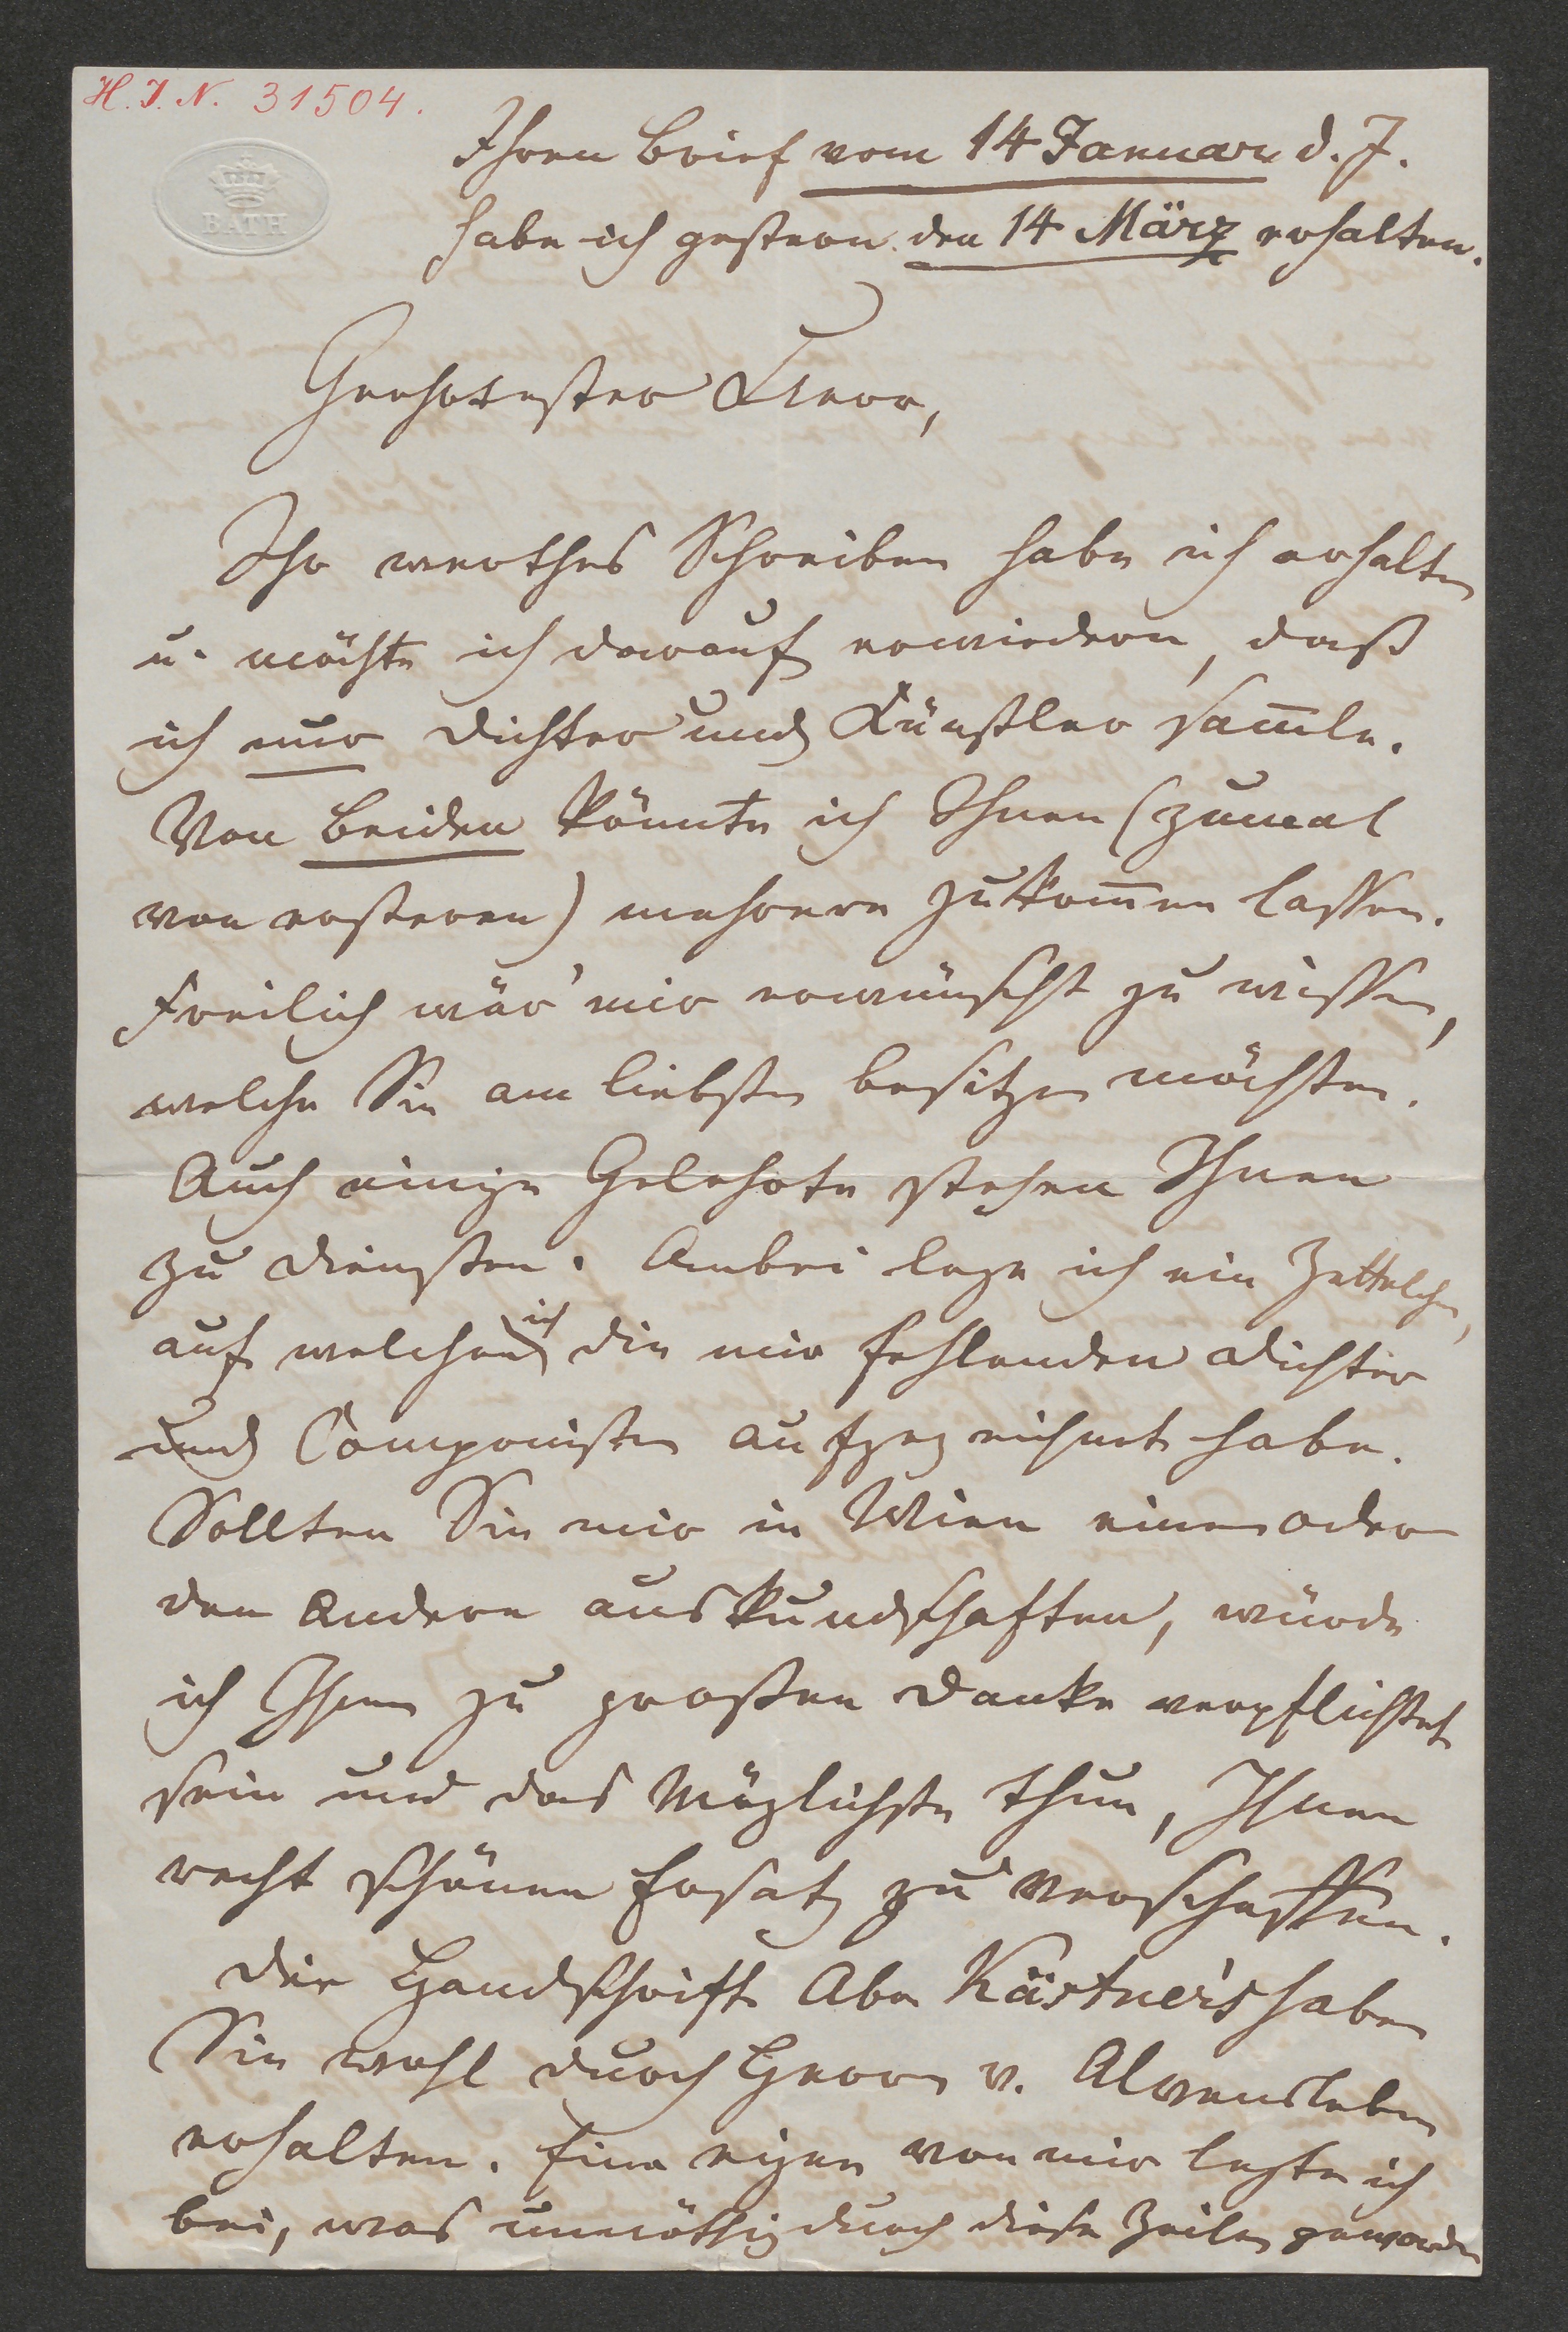 H. I. N. 31504.
BATH
Ihren Brief vom 14 Januar d. J.
habe ich gestern den 14 März erhalten.
Geehrtester Herr,
Ihr werthes Schreiben habe ich erhalten
u. möchte ich darauf erwiedern, daß
ich nur Dichter und Künstler sam̅le.
Von Beiden könnte ich Ihnen (zumal
von ersteren) mehrere zukom̅en lassen.
Freilich wär' mir erwünscht zu wissen,
welche Sie am liebsten besitzen möchten.
Auch einige Gelehrte stehen Ihnen
zu Diensten. Anbei lege ich ein Zettelchen,
auf welchem ich die mir fehlenden Dichter
und Componisten aufgezeichnet habe.
Sollten Sie mir in Wien einen oder
den Andern auskundschaften, würde
ich Ihnen zu großen Danke verpflichtet
sein und das Möglichste thun, Ihnen
recht schönen Ersatz zu verschaffen.
Die Handschrift Abr. Kästner's haben
Sie wohl durch Herrn v. Alvensleben
erhalten. Eine eigen von mir legte ich
bei, was unnöthig durch diese Zeilen geworden